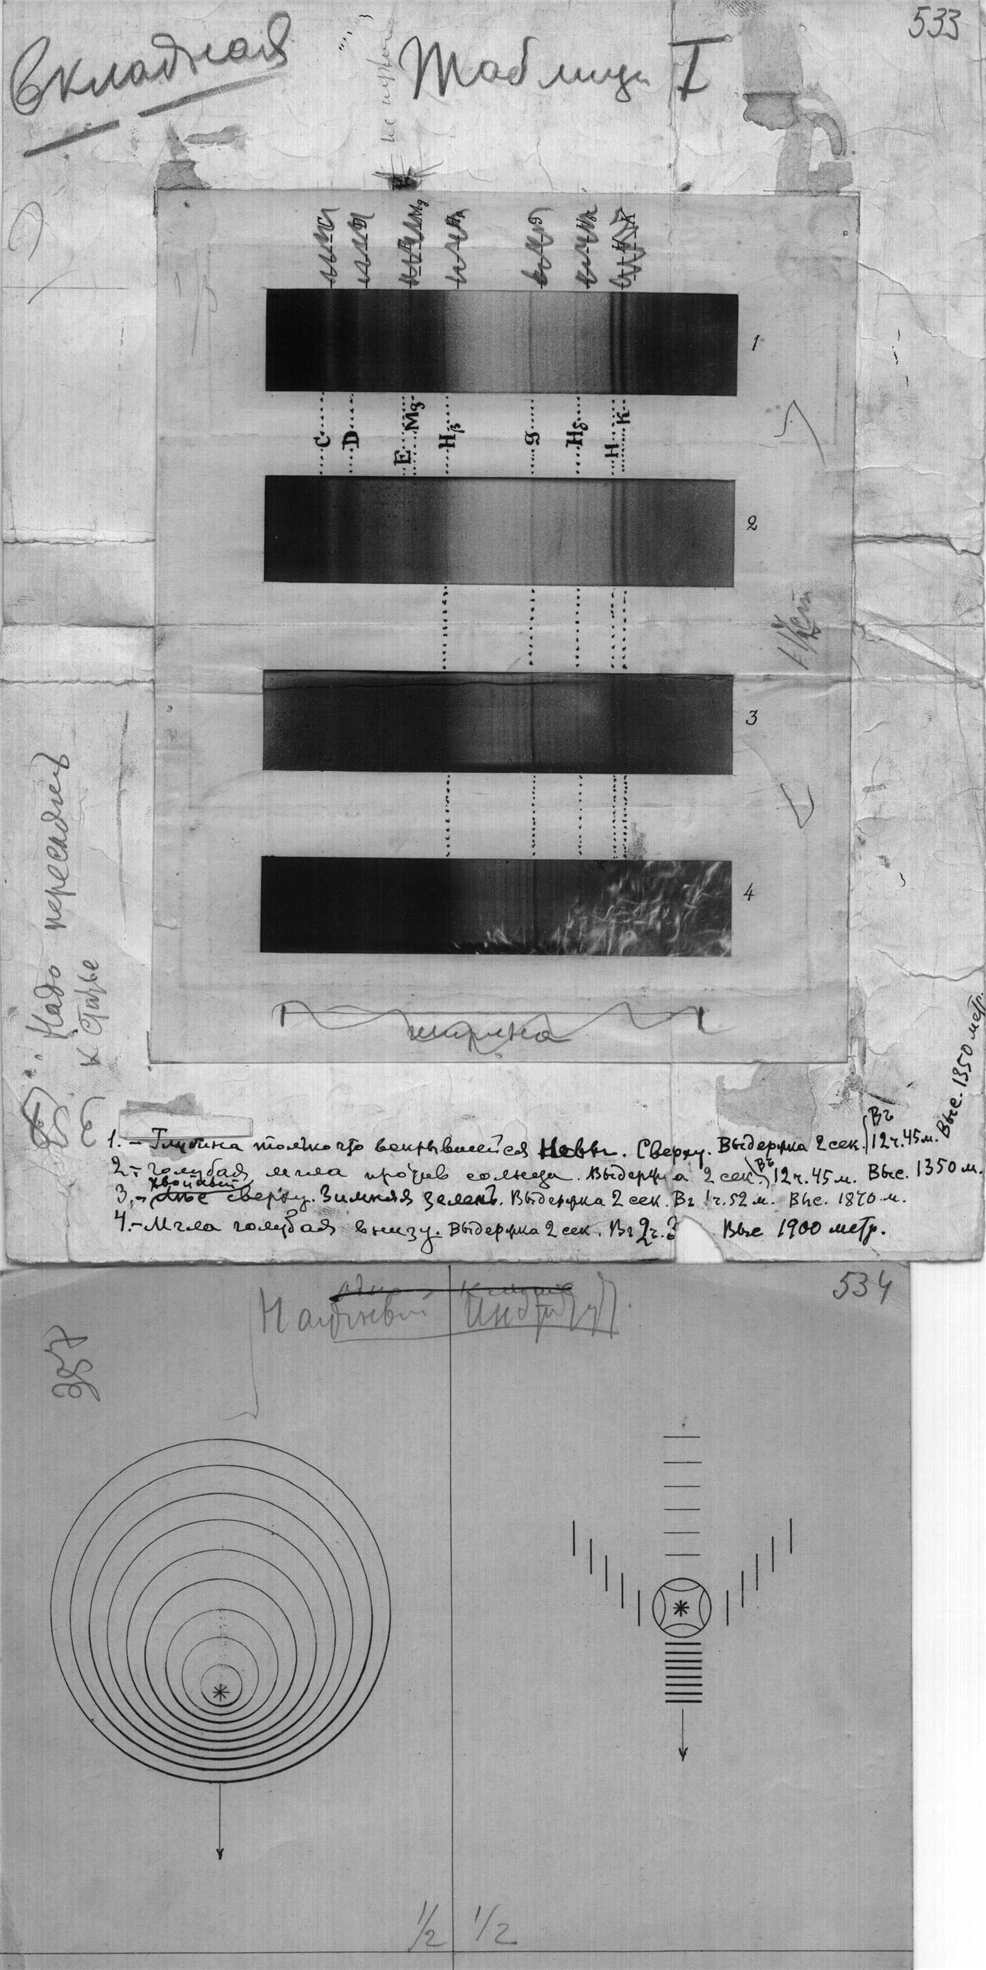 533
Вкладная Таблица I
1
C D E Mg Hβ g Hδ H K
2
3
4
Надо переснять
к статье
ширина
1. – Глубина только что вскрывшейся Невы. Сверху. Выдержка 2 сек. Въ 12 ч. 45 м. Выс. 1350 метр.
2 – голубая мгла против солнца. Выдержка 2 сек. Въ 12 ч. 45 м. Выс. 1350 м.
3. – хвойный лес сверху. Зимняя зелень. Выдержка 2 сек. Въ 1 ч. 52 м. Выс. 1870 м.
4. – Мгла голубая внизу. Выдержка 2 сек. Въ 2 ч. ? Выс 1900 метр.
534
387
1/2 1/2